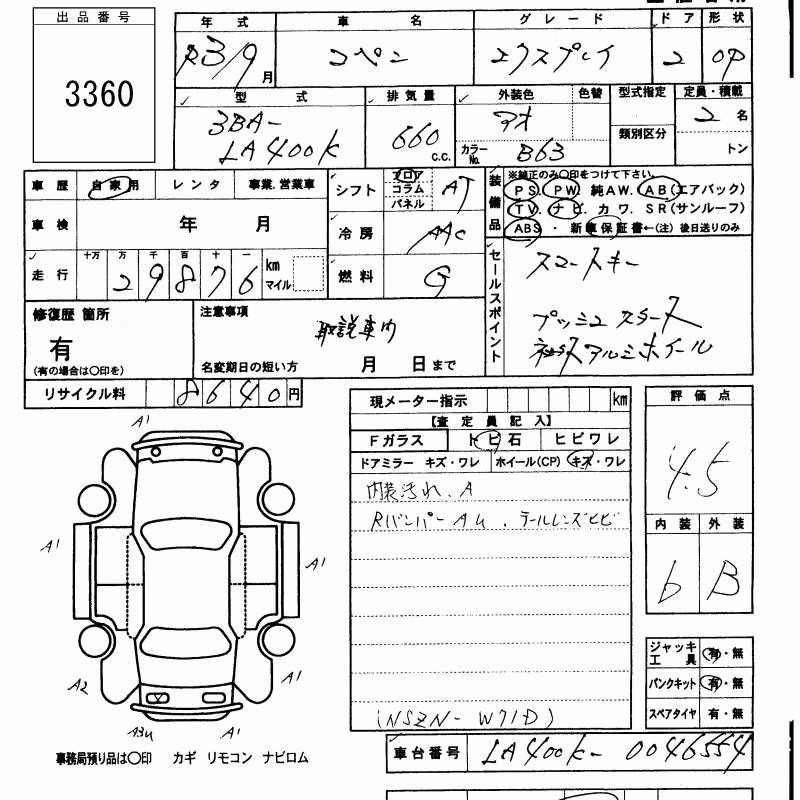 出品番号
3360
年式 車名 グレード ドア 形状
R3/9月 コペン エクスプレイ 2 OP
型式 排気量 外装色 色替 型式指定 定員・積載
3BA-LA400K 660 c.c. アオ 類別区分 2名
カラーNo. B63 トン
車歴 自家用 レンタ 事業.営業車
シフト フロア コラム パネル AT
装備品
※純正のみ○印をつけて下さい。
PS. PW. 純AW. AB(エアバック)
TV. ナビ. カワ. SR(サンルーフ)
ABS ・ 新車保証書←(注) 後日送りのみ
車検 年 月
冷房 AAC
走行 十万 万 千 百 十 一 km マイル
29876
燃料 G
セールスポイント
スマートキー
プッシュスタート
アルミホイール
修復歴 箇所
有
(有の場合は○印を)
注意事項
取説車内
名変期日の短い方 月 日まで
リサイクル料 8640円
現メーター指示 km
【査定員記入】
Fガラス トビ石 ヒビワレ
ドアミラー キズ・ワレ ホイール(CP) キズ・ワレ
内装汚れ、A
Rバンパー AU、テールレンズヒビ
(NSZN-W71D)
評価点
4.5
内装 外装
b B
ジャッキ工具 有・無
パンクキット 有・無
スペアタイヤ 有・無
A1
A1
A1
A2
A1
A3U
A1
事務局預り品は○印 カギ リモコン ナビロム
車台番号 LA400K-0046554